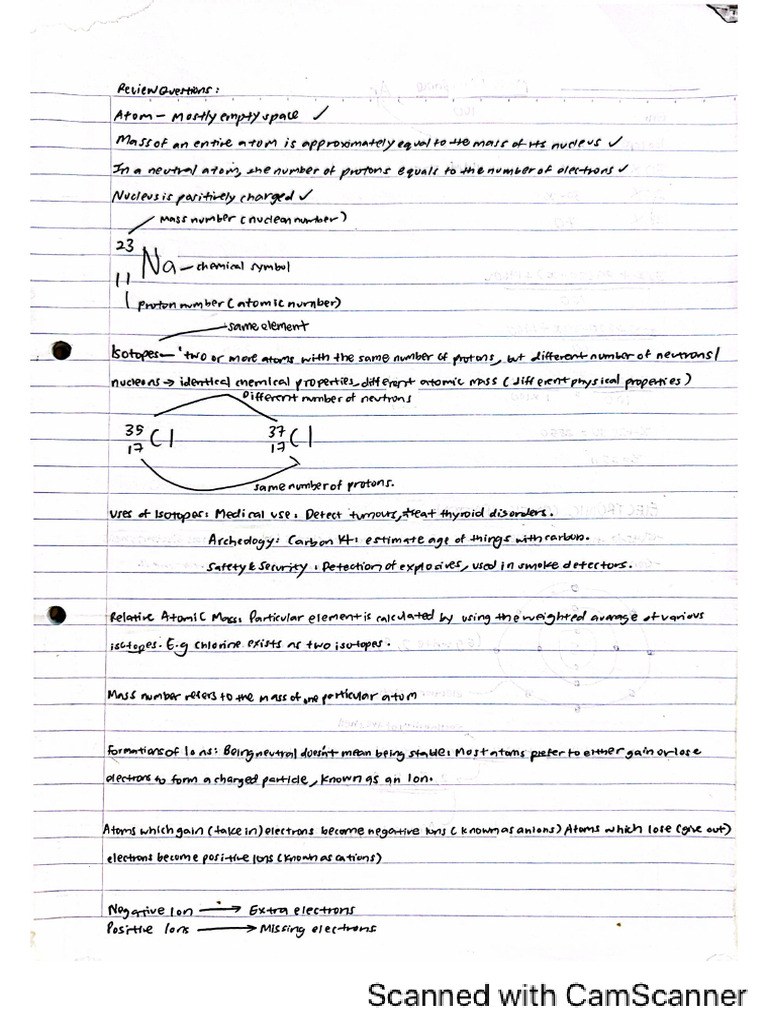 Review Questions:
Atom - Mostly empty space ✓
Mass of an entire atom is approximately equal to the mass of its nucleus ✓
In a neutral atom, the number of protons equals to the number of electrons ✓
Nucleus is positively charged ✓
Mass number (nuclean number)
23
Na - chemical symbol
11
proton number (atomic number)
same element
Isotopes - two or more atoms with the same number of protons, but different number of neutrons/
nucleons → identical chemical properties, different atomic mass (different physical properties)
Different number of neutrons
35 37
Cl Cl
17 17
same number of protons.
Uses of Isotopes: Medical use: Detect tumours, treat thyroid disorders.
Archeology: Carbon 14: estimate age of things with carbon.
Safety & Security: Detection of explosives, used in smoke detectors.
Relative Atomic Mass: Particular element is calculated by using the weighted average of various
isotopes. E.g chlorine exists as two isotopes.
Mass number refers to the mass of one particular atom
Formations of Ions: Being neutral doesn't mean being stable: Most atoms prefer to either gain or lose
electrons to form a charged particle, known as an Ion.
Atoms which gain (take in) electrons become negative Ions (known as anions) Atoms which lose (give out)
electrons become positive Ions (known as cations)
Negative Ion → Extra electrons
Positive Ions → Missing electrons
Scanned with CamScanner